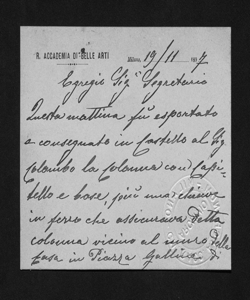 R. ACCADEMIA DI BELLE ARTI
Milano, 19/11 1917
Egregio Sig.r Segretario
Questa mattina fu esportato
e consegnato in Castello al Sig.
Colombo la colonna con Capi-
tello e base, più una chiave
in ferro che assicurava detta
colonna vicino al muro della
Casa in Piazza